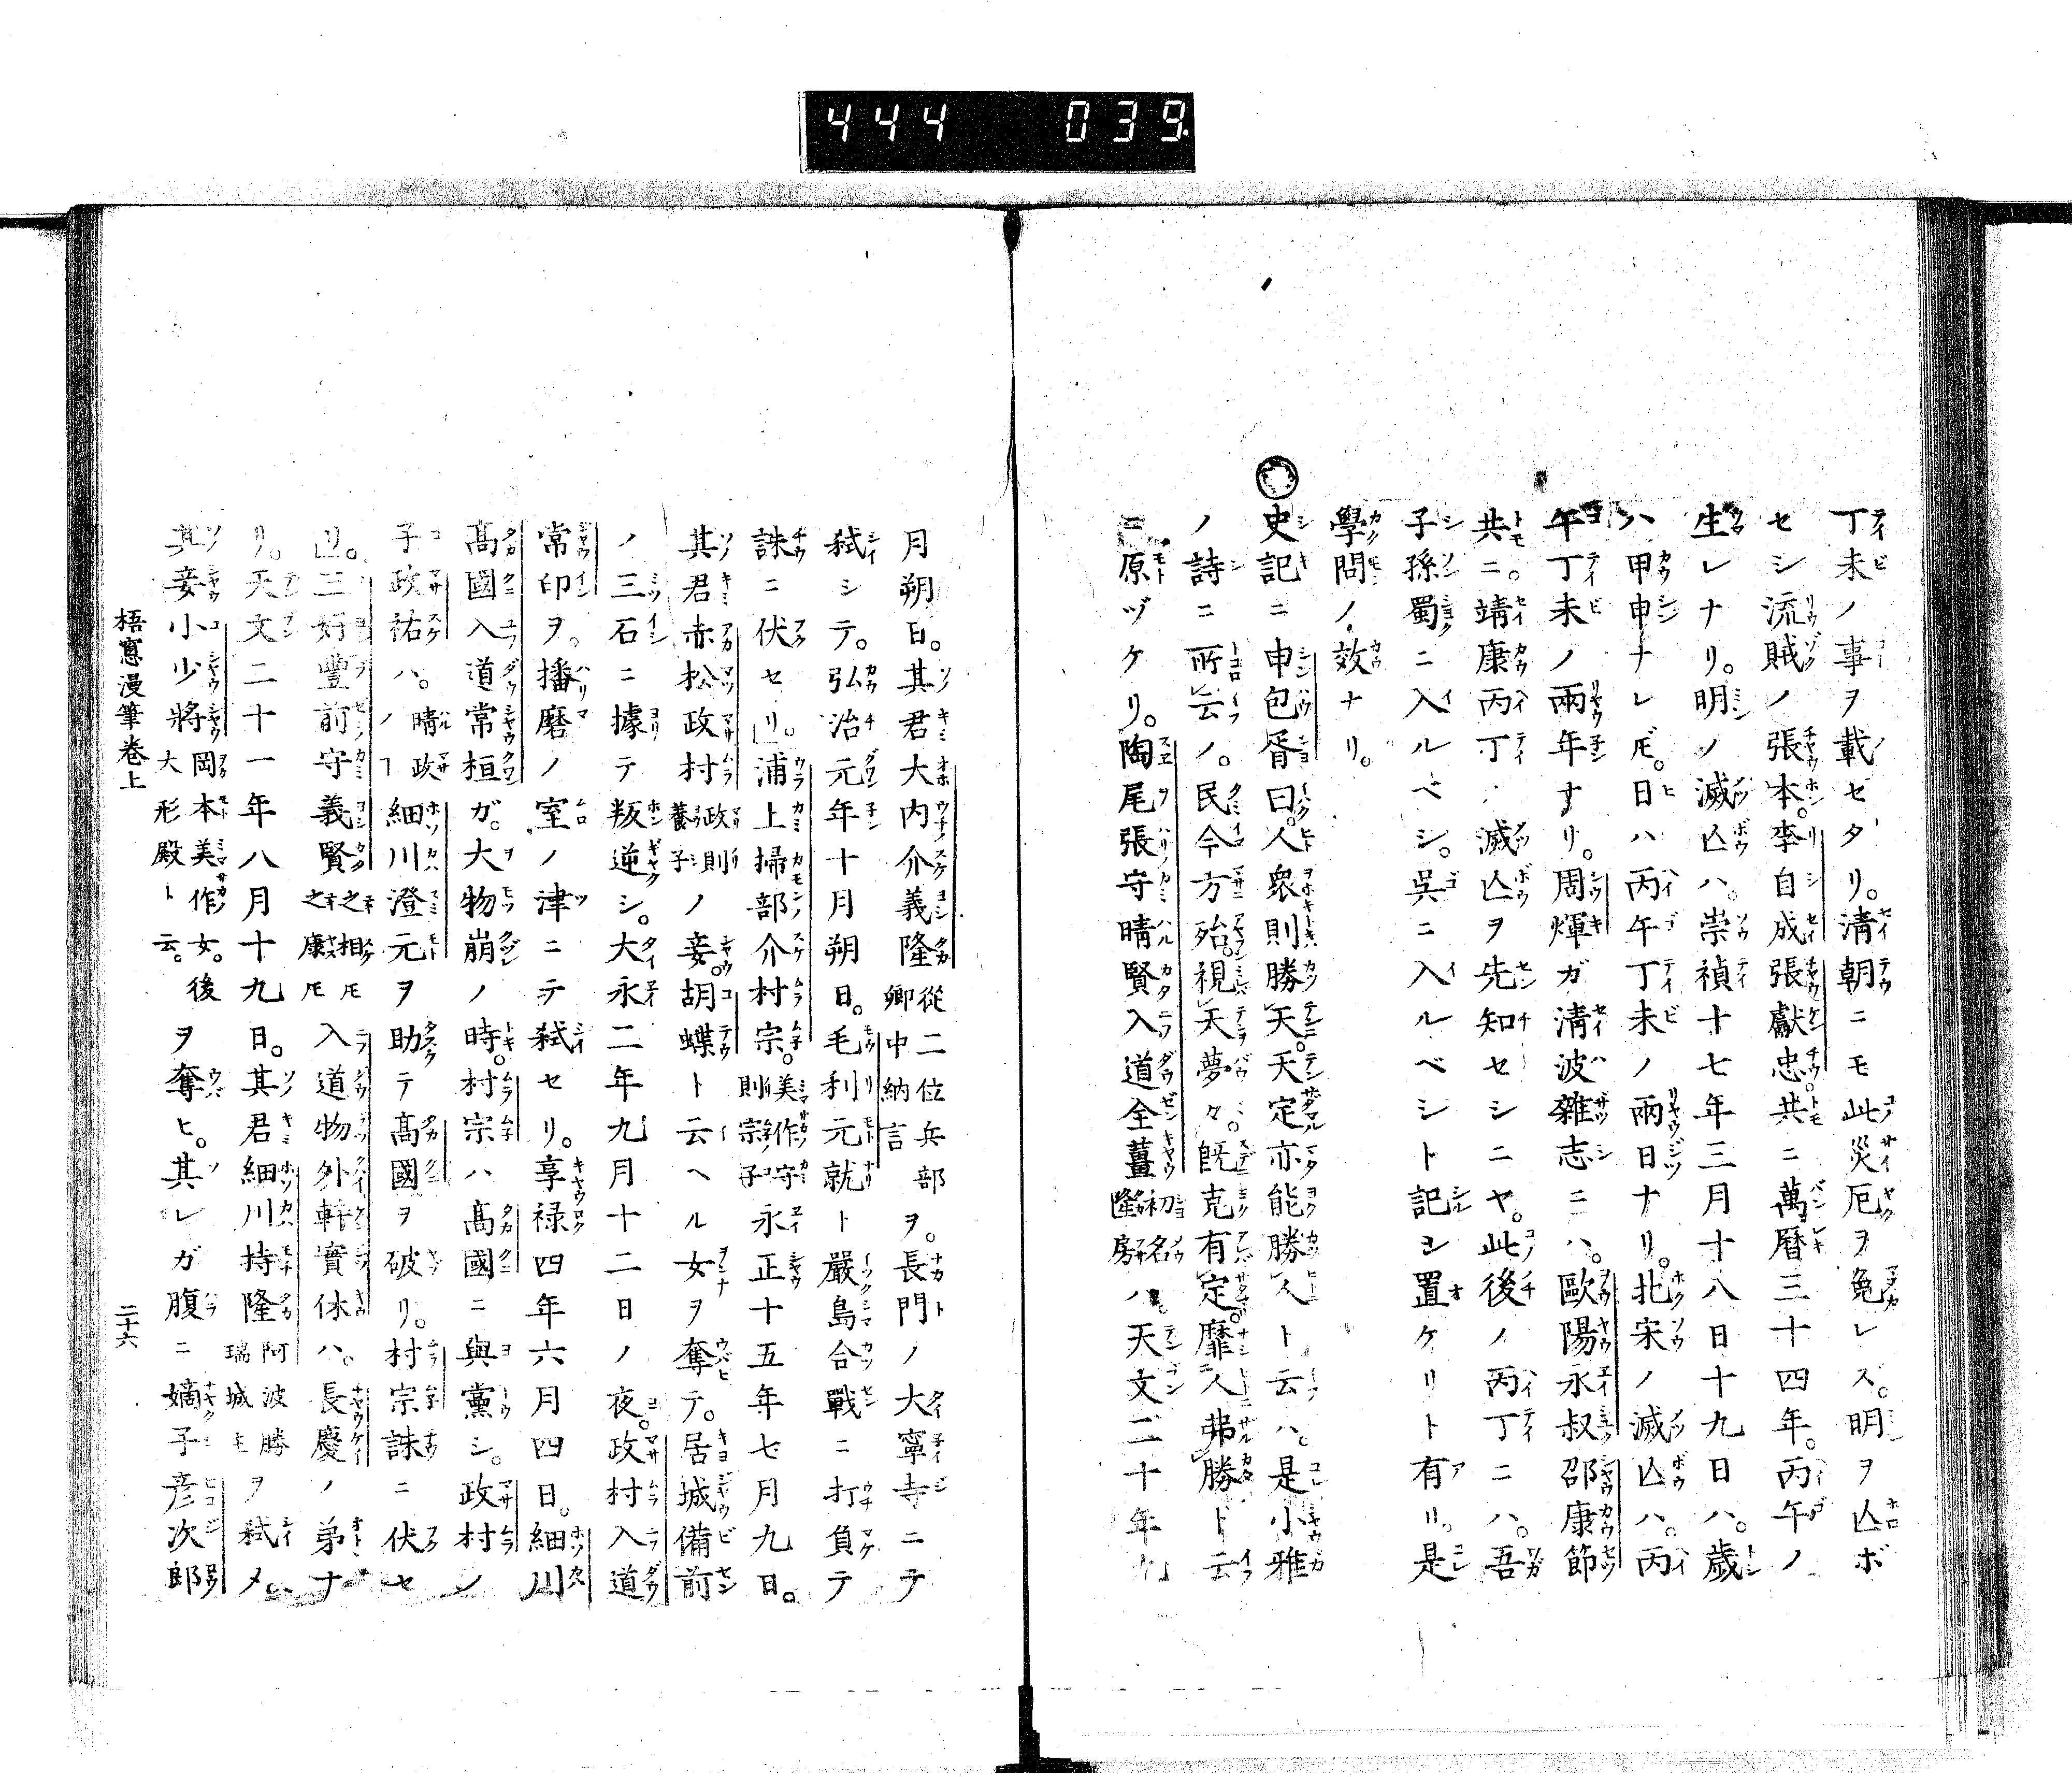 444 039.
丁未ノ事ヲ載セタリ。清朝ニモ此災厄ヲ免レス。明ヲ亾ボ
セシ流賊ノ張本。李自成張獻忠。共ニ萬曆三十四年。丙午ノ
生レナリ。明ノ滅亾ハ。崇禎十七年三月十八日十九日ハ。歲
ハ甲申ナレドモ。日ハ丙午丁未ノ兩日ナリ。北宋ノ滅亾ハ。丙
午丁未ノ兩年ナリ。周煇ガ清波雜志ニハ。歐陽永叔邵康節
共ニ。靖康丙丁ノ滅亾ヲ先知セシニヤ。此後ノ丙丁ニハ。吾
子孫蜀ニ入ルベシ。呉ニ入ルベシト記シ置ケリト有リ。是
學問ノ効ナリ。
史記ニ申包胥曰。人衆則勝天。天定亦能勝人ト云ハ。是小雅
ノ詩ニ所云ノ。民今方殆。視天夢々。既克有定。靡人弗勝ト云
ニ原ヅケリ。陶尾張守晴賢入道全薑初名隆房ハ。天文二十年九
月朔日。其君大内介義隆從二位兵部卿中納言ヲ。長門ノ大寧寺ニテ
弑シテ。弘治元年十月朔日。毛利元就ト嚴島合戰ニ打負テ
誅ニ伏セリ。浦上掃部介村宗。美作守則宗子永正十五年七月九日。
其君赤松政村政則養子ノ妾。胡蝶ト云ヘル女ヲ奪テ。居城備前
ノ三石ニ據テ叛逆シ。大永二年九月十二日ノ夜。政村入道
常印ヲ。播磨ノ室ノ津ニテ弑セリ。享禄四年六月四日。細川
高國入道常桓ガ。大物崩ノ時。村宗ハ高國ニ與黨シ。政村ノ
子政祐ハ。晴政ノヿ細川澄元ヲ助テ高國ヲ破リ。村宗誅ニ伏セ
リ。三好豐前守義賢之相トモ之康トモ入道物外軒實休ハ。長慶ノ弟ナ
リ。天文二十一年八月十九日。其君細川持隆阿波勝瑞城主ヲ弑メ。
其妾小少將岡本美作女。後大形殿ト云。ヲ奪ヒ。其レガ腹ニ嫡子彦次郎
梧窻漫筆卷上 二十六